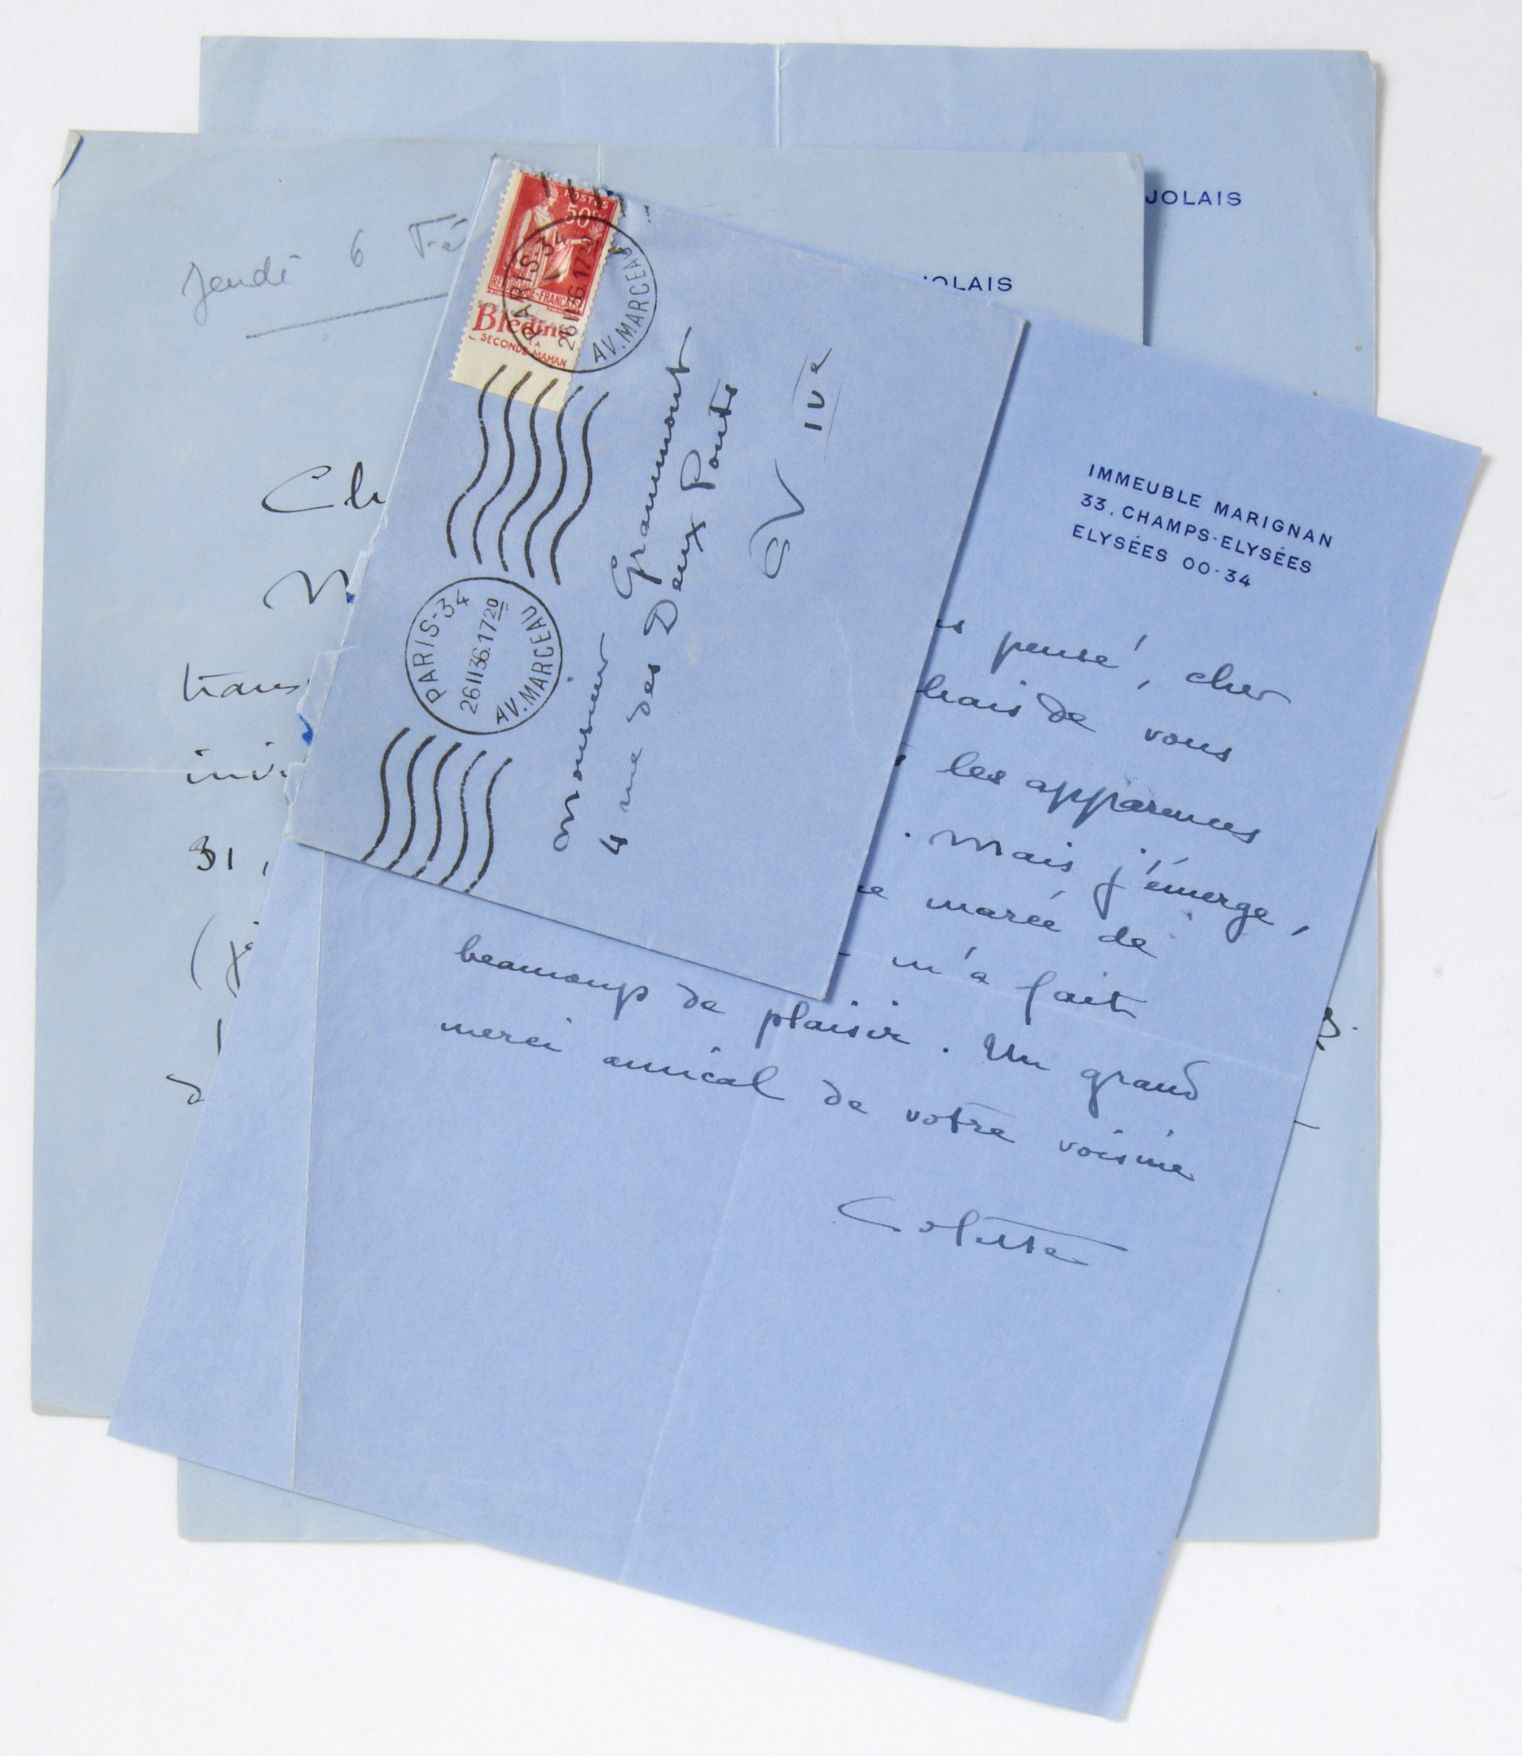 JOLAIS
OLAIS
Jeudi 6 Fé
Ch
trans
invi
31,
POSTES
50c
REPUBLIQUE-FRANÇAISE
Blédine
LA
SECONDE MAMAN
PARIS-34
26 II 36. 17 20
AV. MARCEAU
PARIS-34
26 II 36. 17 20
AV. MARCEAU
Monsieur Grammont
4 rue des Deux Ponts
EV IVe
IMMEUBLE MARIGNAN
33. CHAMPS-ELYSÉES
ELYSÉES 00-34
pensé, cher
hais de vous
les apparences
. Mais j'émerge,
marée de
m'a fait
beaucoup de plaisir. Un grand
merci amical de votre voisine
Colette